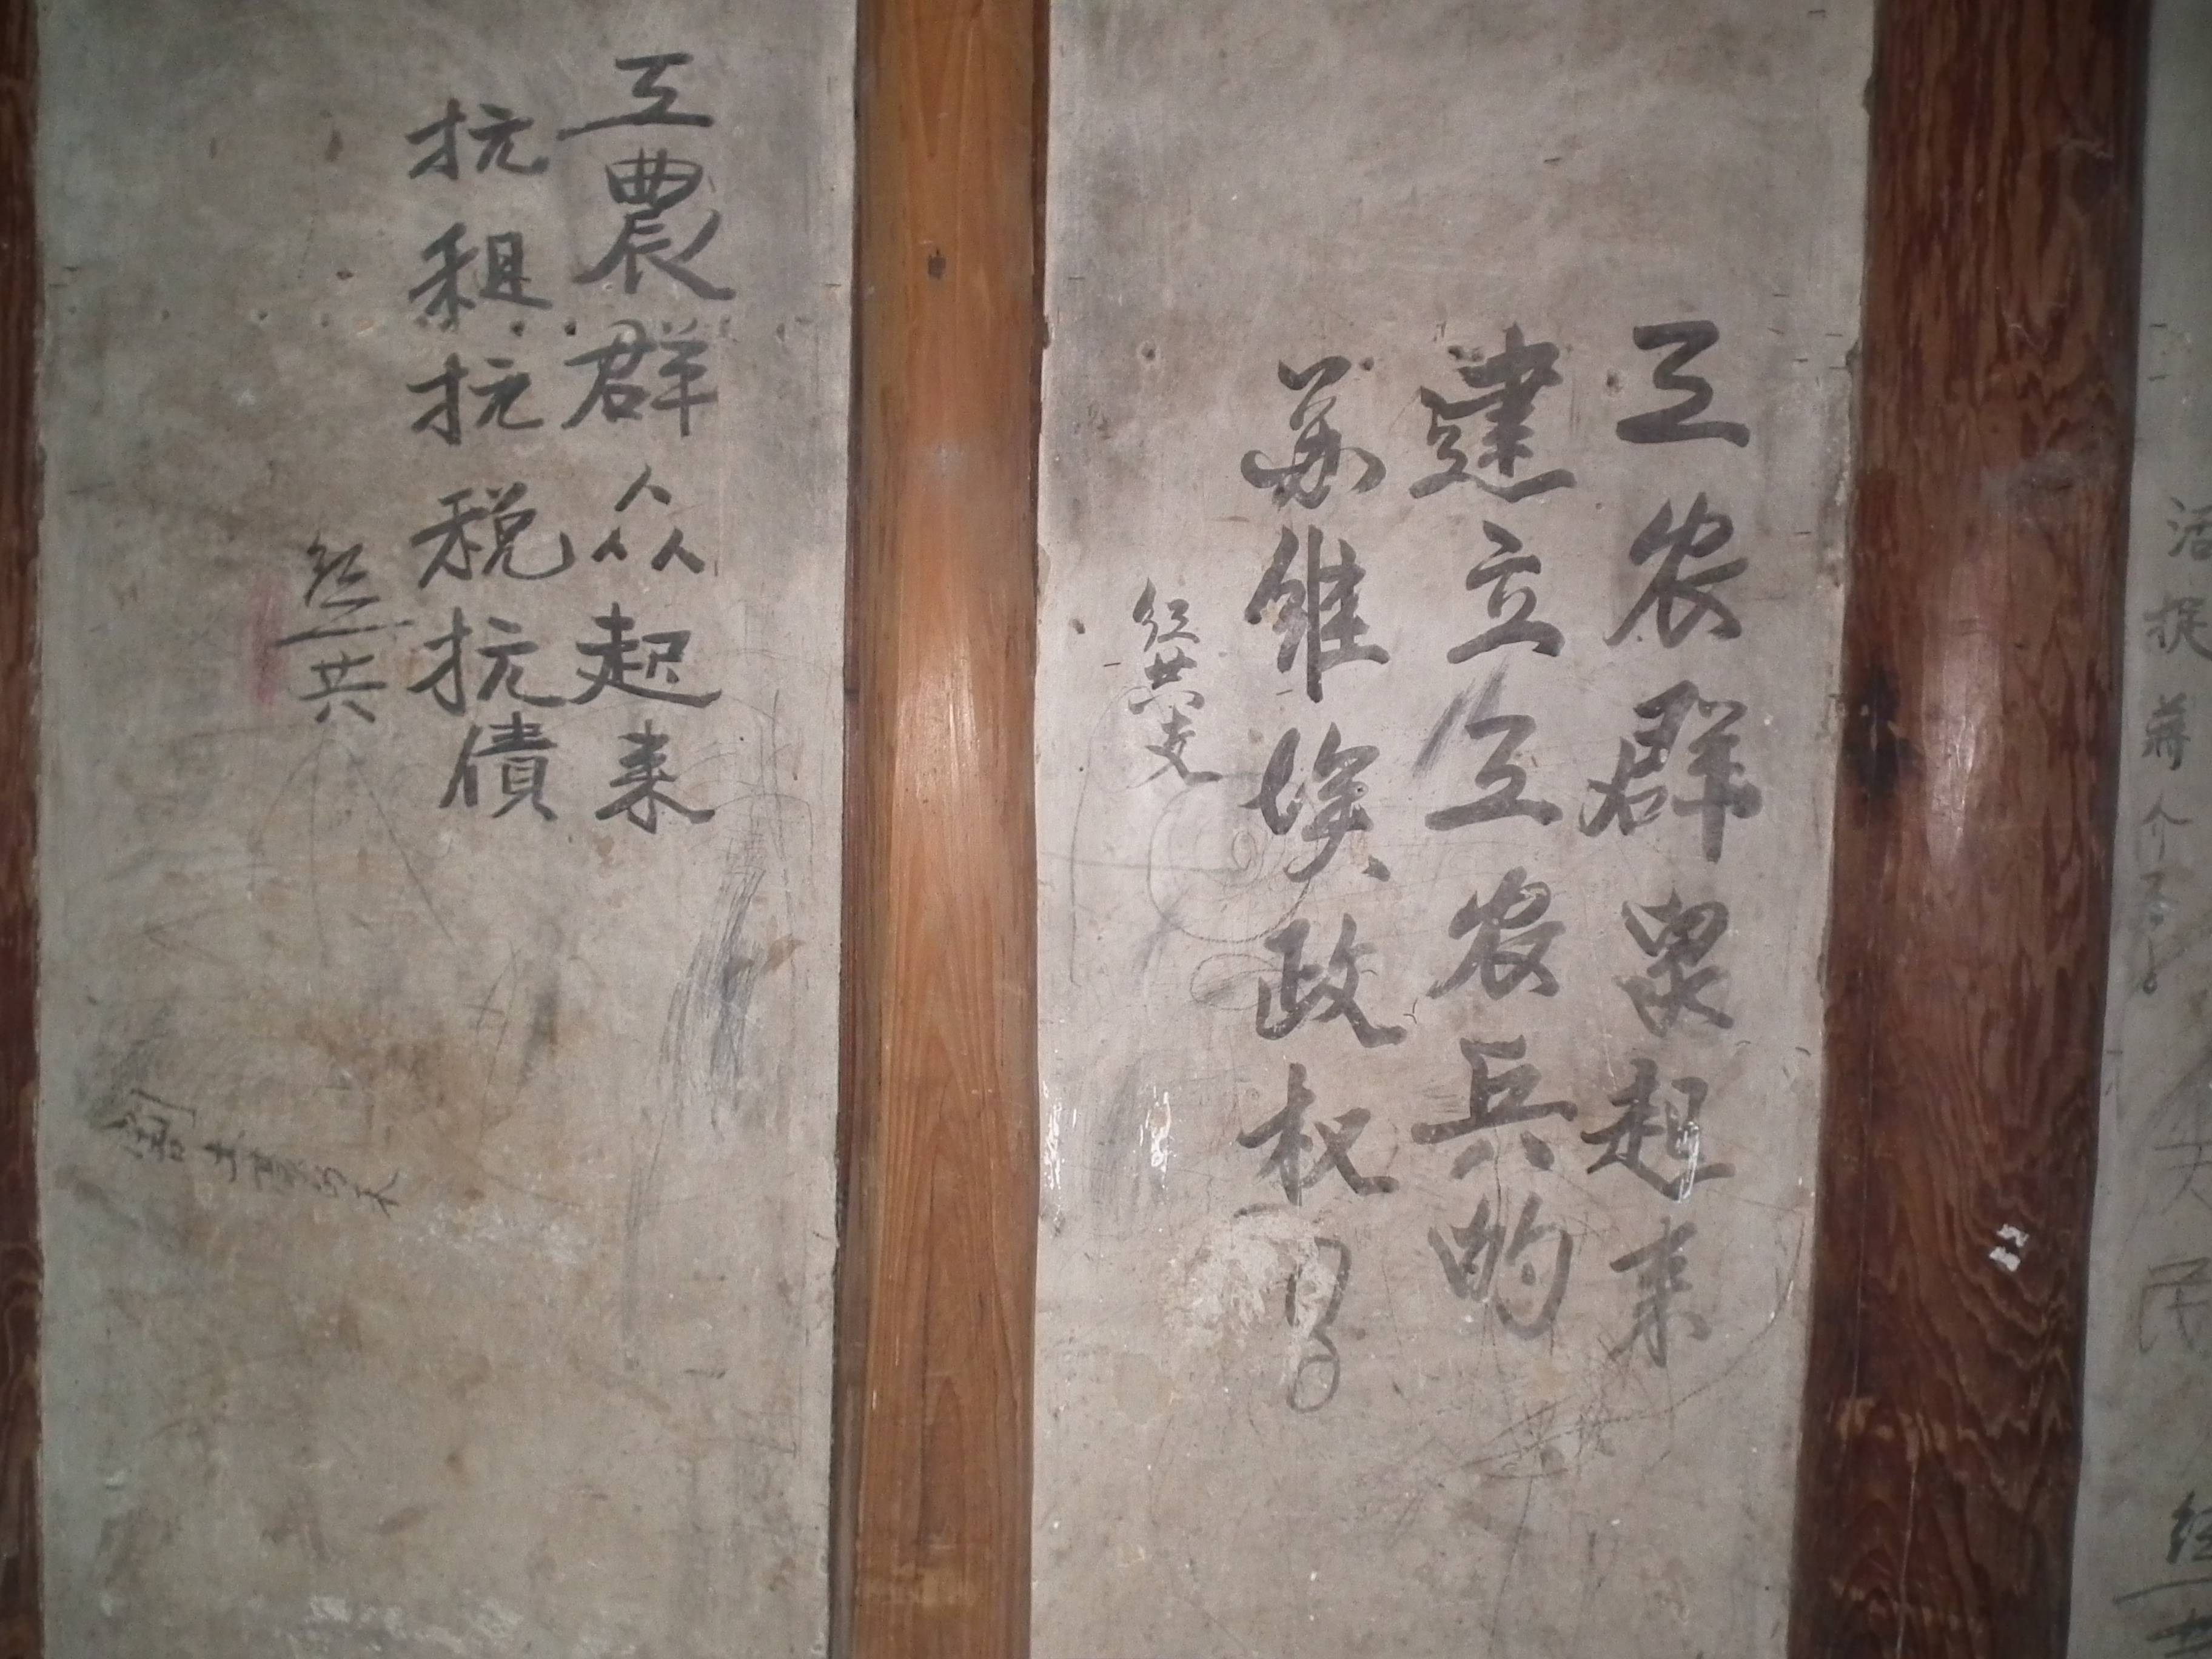 活捉蒋介石
工农群眾起来
建立工农兵的
苏维埃政权
红共支
工農群众起来
抗租抗税抗債
红工共